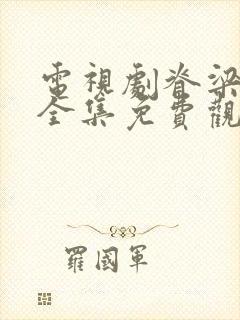 電視劇脊梁
全集免費觀
羅國軍